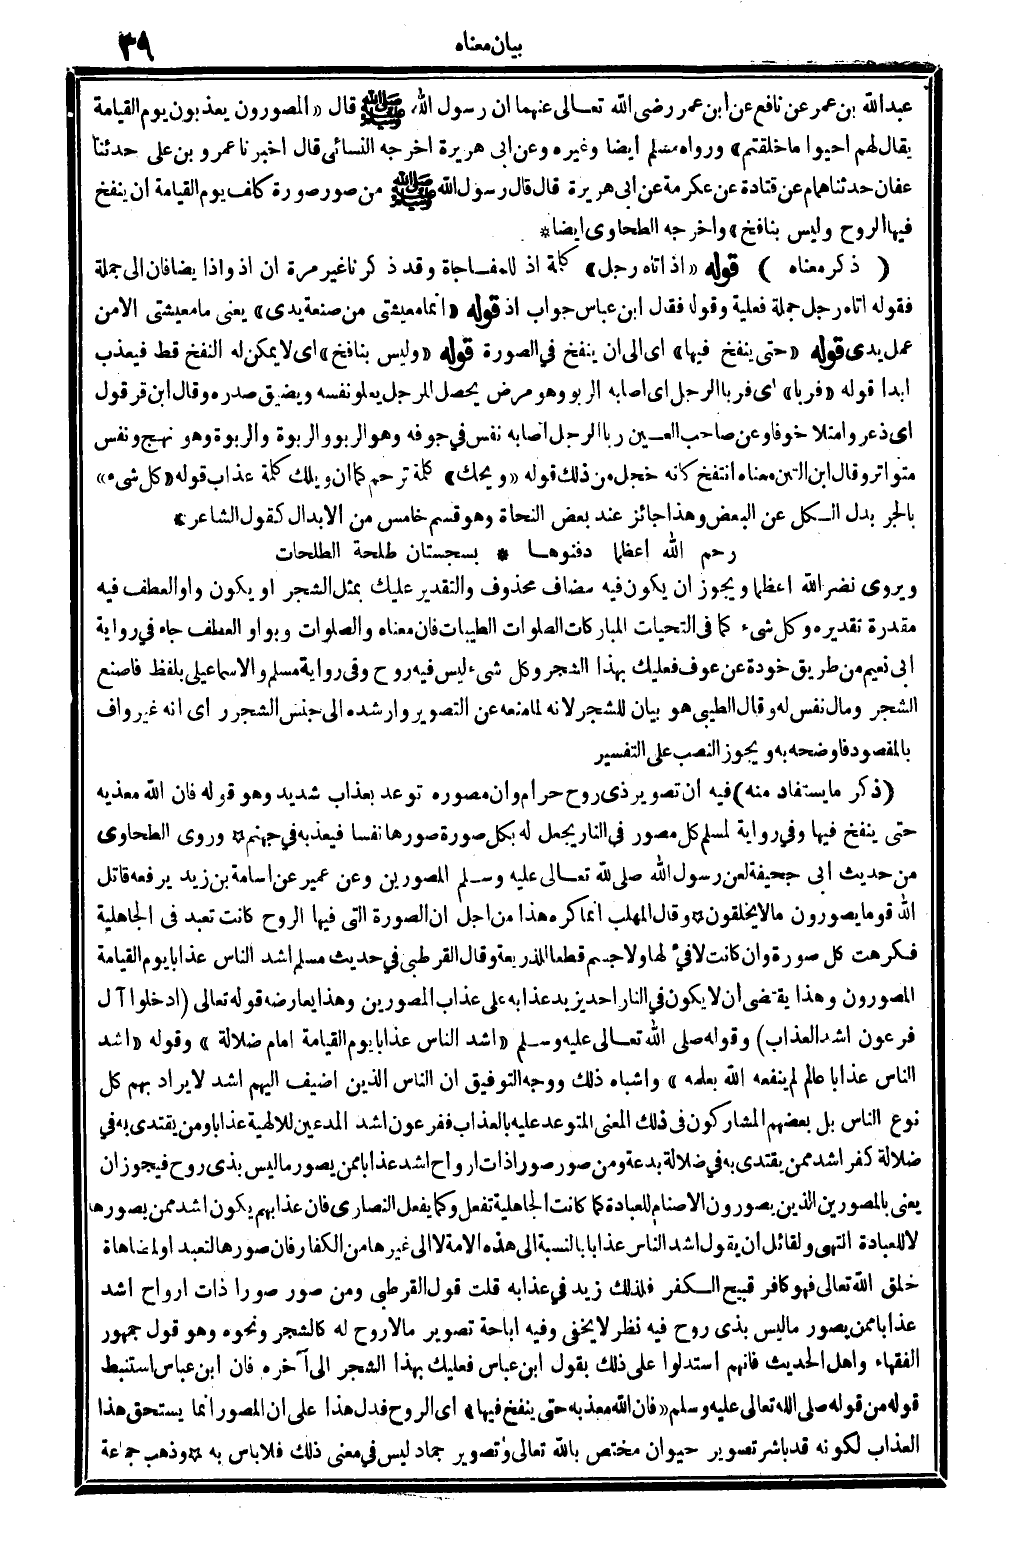 بيان معناه ٣٩
عبدالله بن عمر عن نافع عن ابن عمر رضى الله تعالى عنهما ان رسول الله ﷺ قال «المصورون يعذبون يوم القيامة
يقال لهم احيوا ما خلقتم» ورواه مسلم ايضا وغيره وعن ابى هريرة اخرجه النسائى قال اخبرنا عمرو بن على حدثنا
عفان حدثنا همام عن قتادة عن عكرمة عن ابى هريرة قال قال رسول الله ﷺ من صور صورة كلف يوم القيامة ان ينفخ
فيها الروح وليس بنافخ» واخرجه الطحاوى ايضا *
( ذكر معناه ) قوله «اذ اتاه رجل» كلمة اذ للمفاجاة وقد ذكرنا غير مرة ان اذ واذا يضافان الى جملة
فقوله اتاه رجل جملة فعلية وقوله فقال ابن عباس جواب اذ قوله «انما معيشتى من صنعة يدى» يعنى ما معيشتى الا من
عمل يدى قوله «حتى ينفخ فيها» اى الى ان ينفخ فى الصورة قوله «وليس بنافخ» اى لا يمكن له النفخ قط فيعذب
ابدا قوله «فربا» اى فربا الرجل اى اصابه الربو وهو مرض يحصل للرجل يعلو نفسه ويضيق صدره وقال ابن قرقول
اى ذعر وامتلا خوفا وعن صاحب العين ربا الرجل اصابه نفس فى جوفه وهو الربو والربوة والربوة وهو نهيج ونفس
متواتر وقال ابن التين معناه انتفخ كانه خجل من ذلك قوله «ويحك» كلمة ترحم كما ان ويلك كلمة عذاب قوله «كل شىء»
بالجر بدل الكل عن البعض وهذا جائز عند بعض النحاة وهو قسم خامس من الابدال كقول الشاعر *
رحم الله اعظما دفنوها * بسجستان طلحة الطلحات
ويروى نضر الله اعظما ويجوز ان يكون فيه مضاف محذوف والتقدير عليك بمثل الشجر او يكون واو العطف فيه
مقدرة تقديره وكل شىء كما فى التحيات المباركات الصلوات الطيبات فان معناه والصلوات وبواو العطف جاء فى رواية
ابى نعيم من طريق خودة عن عوف فعليك بهذا الشجر وكل شىء ليس فيه روح وفى رواية مسلم والاسماعيلى بلفظ فاصنع
الشجر ومالا نفس له وقال الطيبى هو بيان للشجر لانه لما منعه عن التصوير وارشده الى جنس الشجر راى انه غير واف
بالمقصود فاوضحه به ويجوز النصب على التفسير
(ذكر ما يستفاد منه) فيه ان تصوير ذى روح حرام وان مصوره توعد بعذاب شديد وهو قوله فان الله معذبه
حتى ينفخ فيها وفى رواية لمسلم كل مصور فى النار يجعل له بكل صورة صورها نفسا فيعذبه فى جهنم * وروى الطحاوى
من حديث ابى جحيفة لعن رسول الله صلى الله تعالى عليه وسلم المصورين وعن عمير عن اسامة بن زيد يرفعه قاتل
الله قوما يصورون مالا يخلقون * وقال المهلب انما كره هذا من اجل ان الصورة التى فيها الروح كانت تعبد فى الجاهلية
فكرهت كل صورة وان كانت لا فىء لها ولا جسم قطعا للذريعة وقال القرطبى فى حديث مسلم اشد الناس عذابا يوم القيامة
المصورون وهذا يقتضى ان لا يكون فى النار احد يزيد عذابه على عذاب المصورين وهذا يعارضه قوله تعالى (ادخلوا آل
فرعون اشد العذاب) وقوله صلى الله تعالى عليه وسلم «اشد الناس عذابا يوم القيامة امام ضلالة» وقوله «اشد
الناس عذابا عالم لم ينفعه الله بعلمه» واشباه ذلك ووجه التوفيق ان الناس الذين اضيف اليهم اشد لا يراد بهم كل
نوع الناس بل بعضهم المشاركون فى ذلك المعنى المتوعد عليه بالعذاب ففرعون اشد المدعين للالهية عذابا ومن يقتدى به فى
ضلالة كفر اشد ممن يقتدى به فى ضلالة بدعة ومن صور صورا ذات ارواح اشد عذابا ممن يصور ما ليس بذى روح فيجوز ان
يعنى بالمصورين الذين يصورون الاصنام للعبادة كما كانت الجاهلية تفعل وكما يفعل النصارى فان عذابهم يكون اشد ممن يصورها
لا للعبادة انتهى ولقائل ان يقول اشد الناس عذابا بالنسبة الى هذه الامة لا الى غيرها من الكفار فان صورها لتعبد او لمضاهاة
خلق الله تعالى فهو كافر قبيح الكفر فلذلك زيد فى عذابه قلت قول القرطبى ومن صور صورا ذات ارواح اشد
عذابا ممن يصور ما ليس بذى روح فيه نظر لا يخفى وفيه اباحة تصوير مالا روح له كالشجر ونحوه وهو قول جمهور
الفقهاء واهل الحديث فانهم استدلوا على ذلك بقول ابن عباس فعليك بهذا الشجر الى آخره فان ابن عباس استنبط
قوله من قوله صلى الله تعالى عليه وسلم «فان الله معذبه حتى ينفخ فيها» اى الروح فدل هذا على ان المصور انما يستحق هذا
العذاب لكونه قد باشر تصوير حيوان مختص بالله تعالى وتصوير جماد ليس فى معنى ذلك فلا باس به * وذهب جماعة